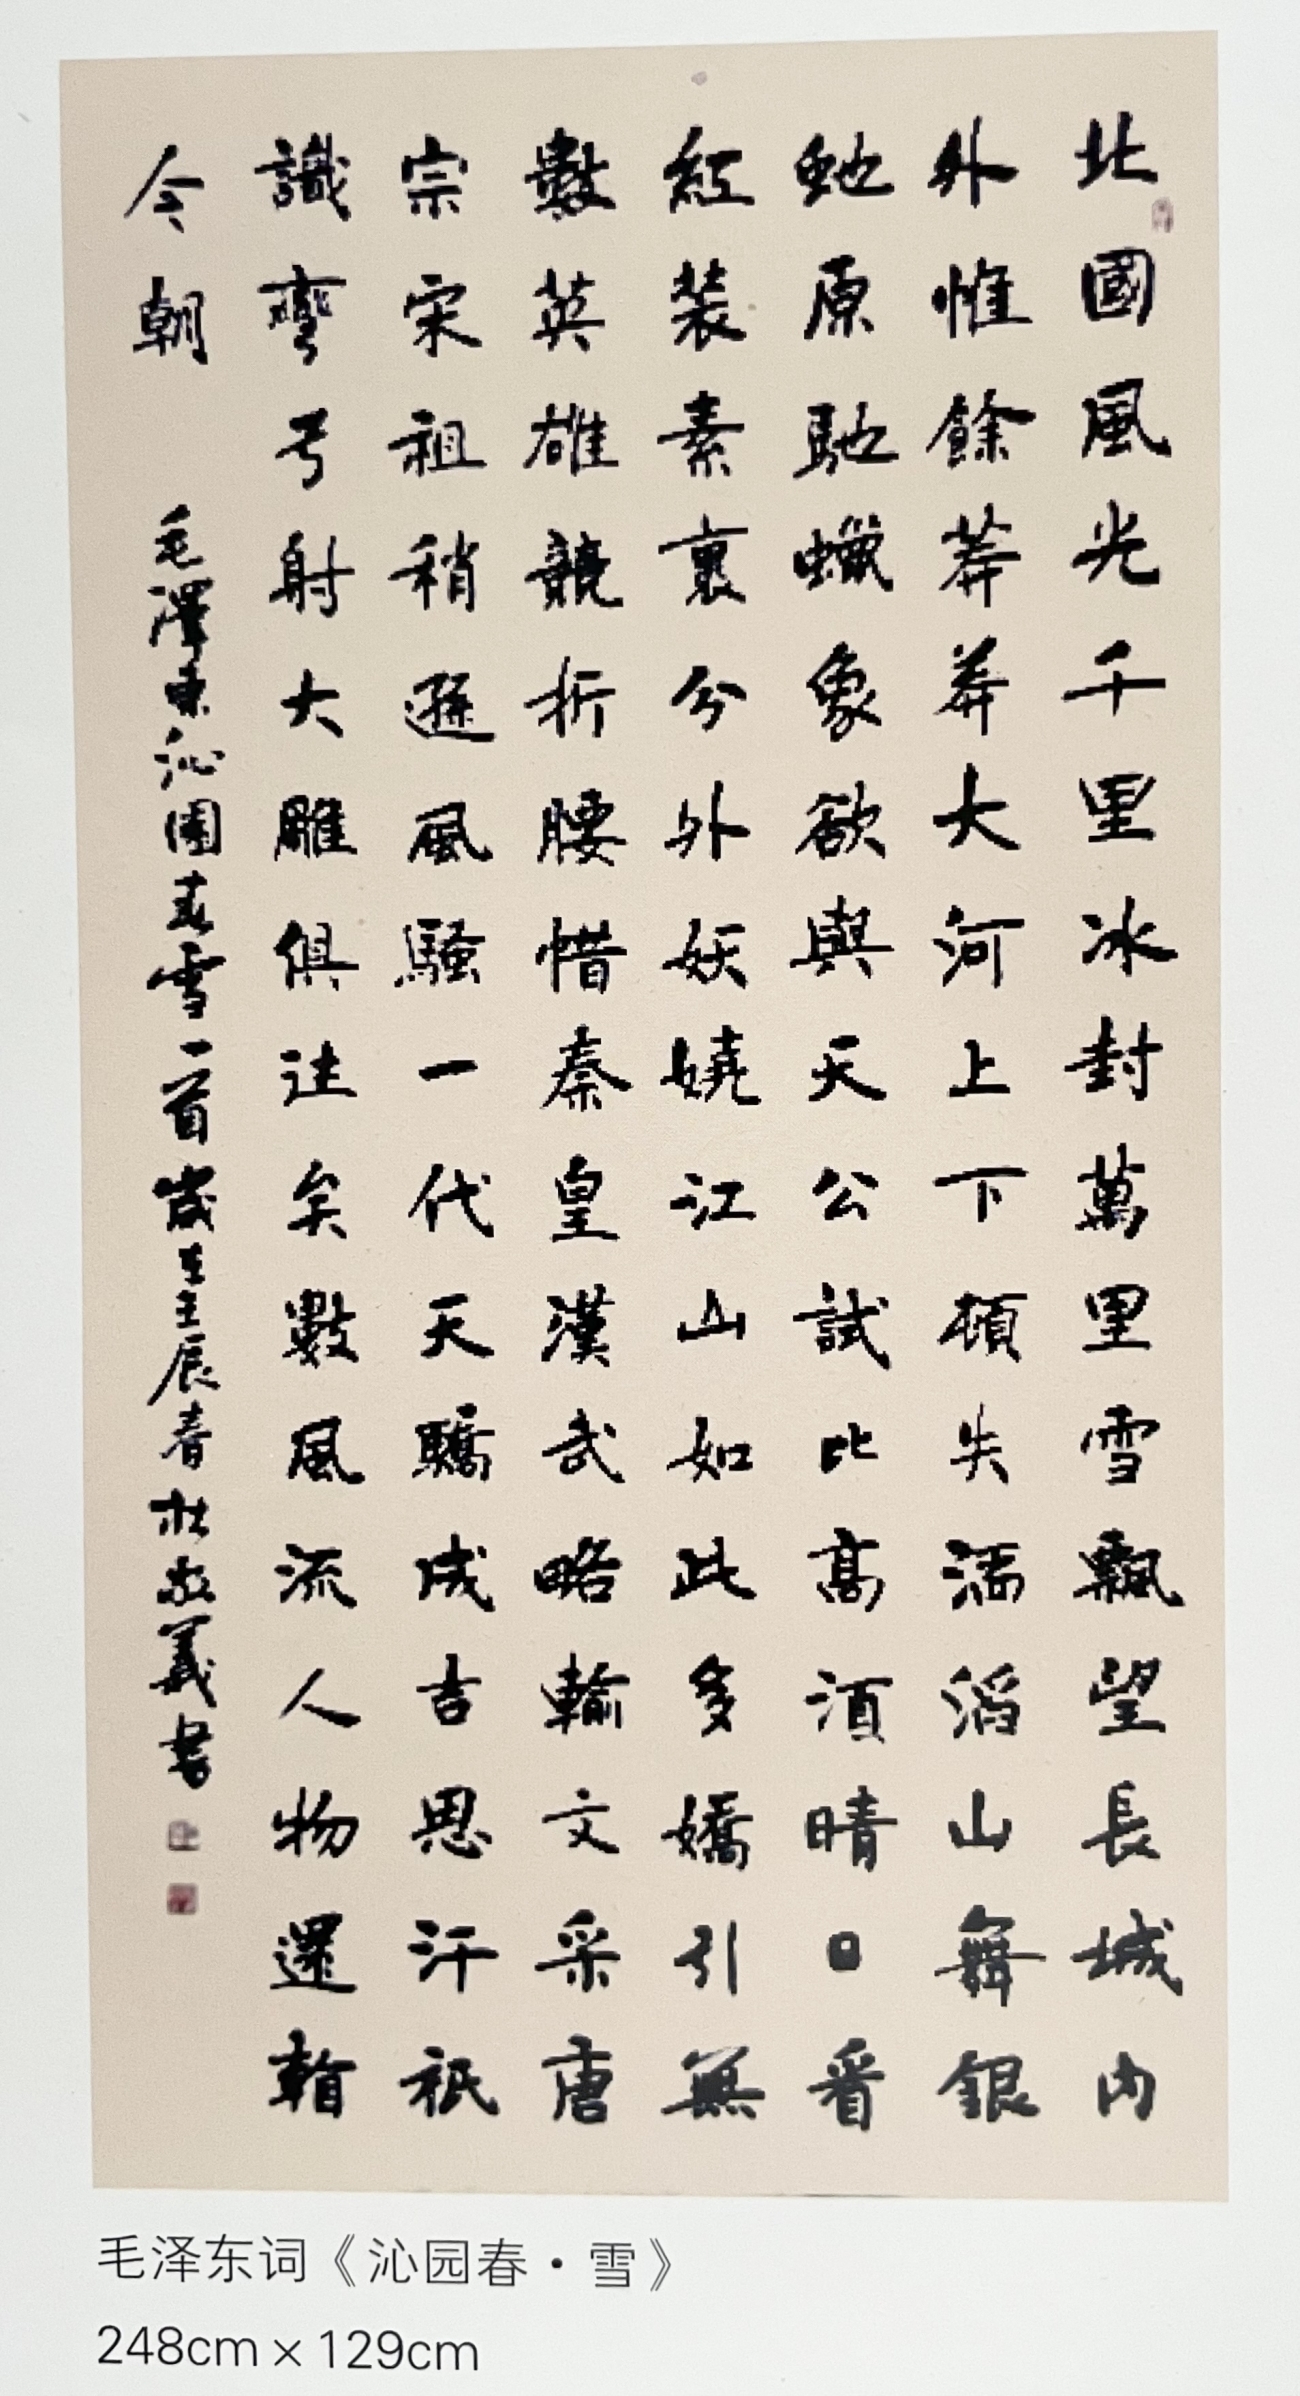 北國風光千里冰封萬里雪飄望長城内
外惟餘莽莽大河上下頓失滔滔山舞銀
虵原馳蠟象欲與天公試比高湏晴日看
紅裝素裹分外妖嬈江山如此多嬌引無
數英雄競折腰惜秦皇漢武略輸文采唐
宗宋祖稍遜風騷一代天驕成吉思汗祇
識彎弓射大雕俱往矣數風流人物還看
今朝
毛澤東沁園春雪一首歲在壬辰春杜義書
毛泽东词《沁园春·雪》
248cm×129cm